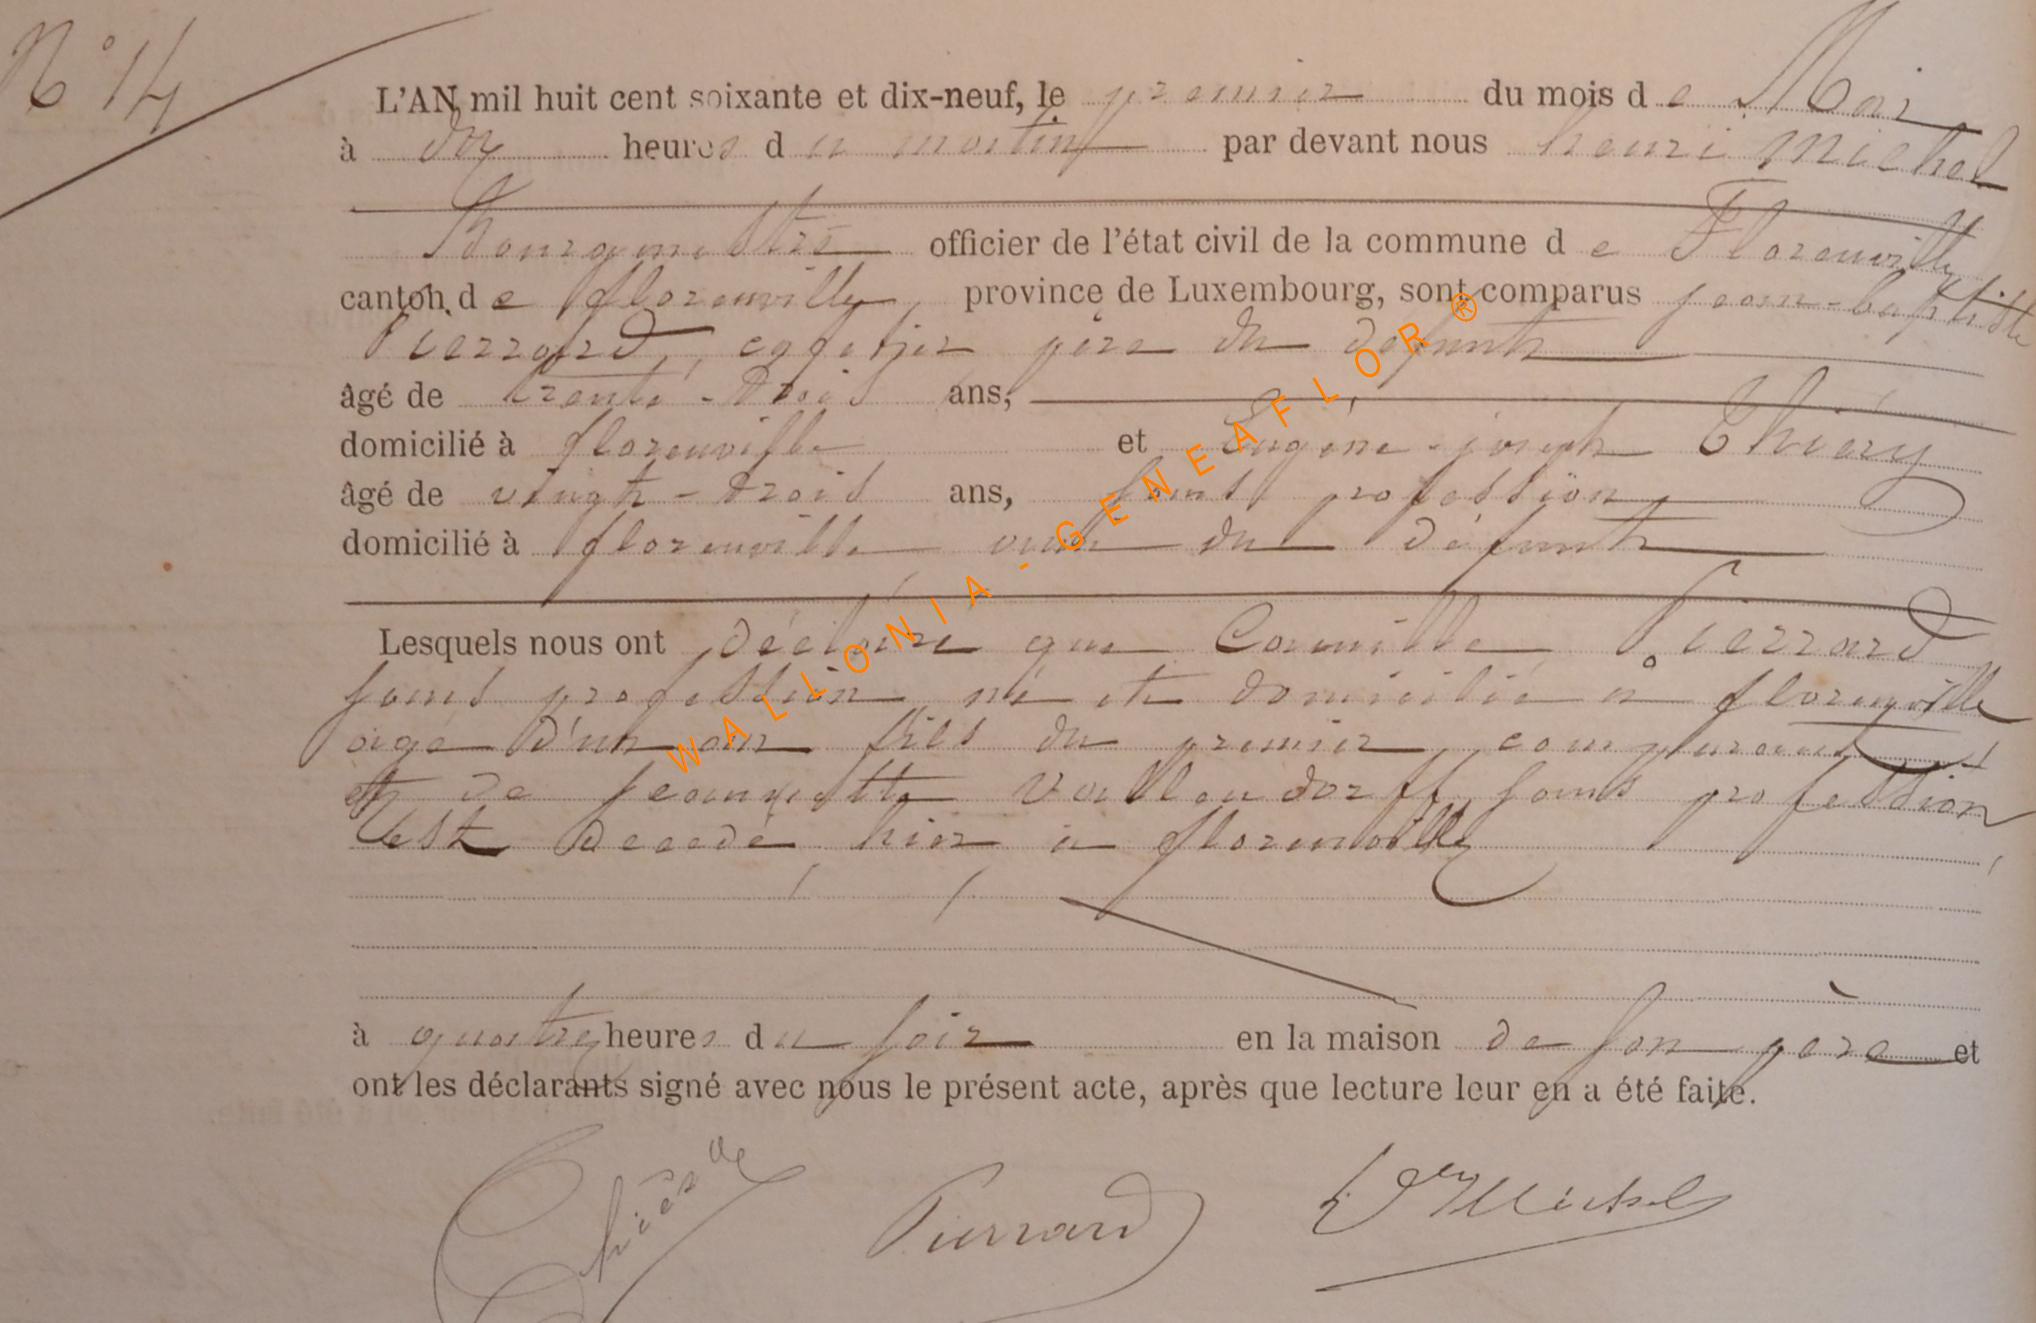 N° 14
L'AN mil huit cent soixante et dix-neuf, le premier du mois de Mai
à dix heures du matin par devant nous henri Michel
Bourgmestre officier de l'état civil de la commune de Florenville
canton de florenville, province de Luxembourg, sont comparus jean-baptiste
Pierrard, père du défunt
âgé de trente-trois ans,
domicilié à florenville et Eugène-joseph Thiéry
âgé de vingt-trois ans, sans profession
domicilié à florenville du défunt
Lesquels nous ont déclaré que Camille Pierrard
sans profession né et domicilié à florenville
âgé d'un an fils du premier comparant
et de jeannette sans profession
est decedé hier à florenville
à quatre heures du soir en la maison de son père et
ont les déclarants signé avec nous le présent acte, après que lecture leur en a été faite.
Pierrard
Michel
WALLONIA-GENEAFLOR®